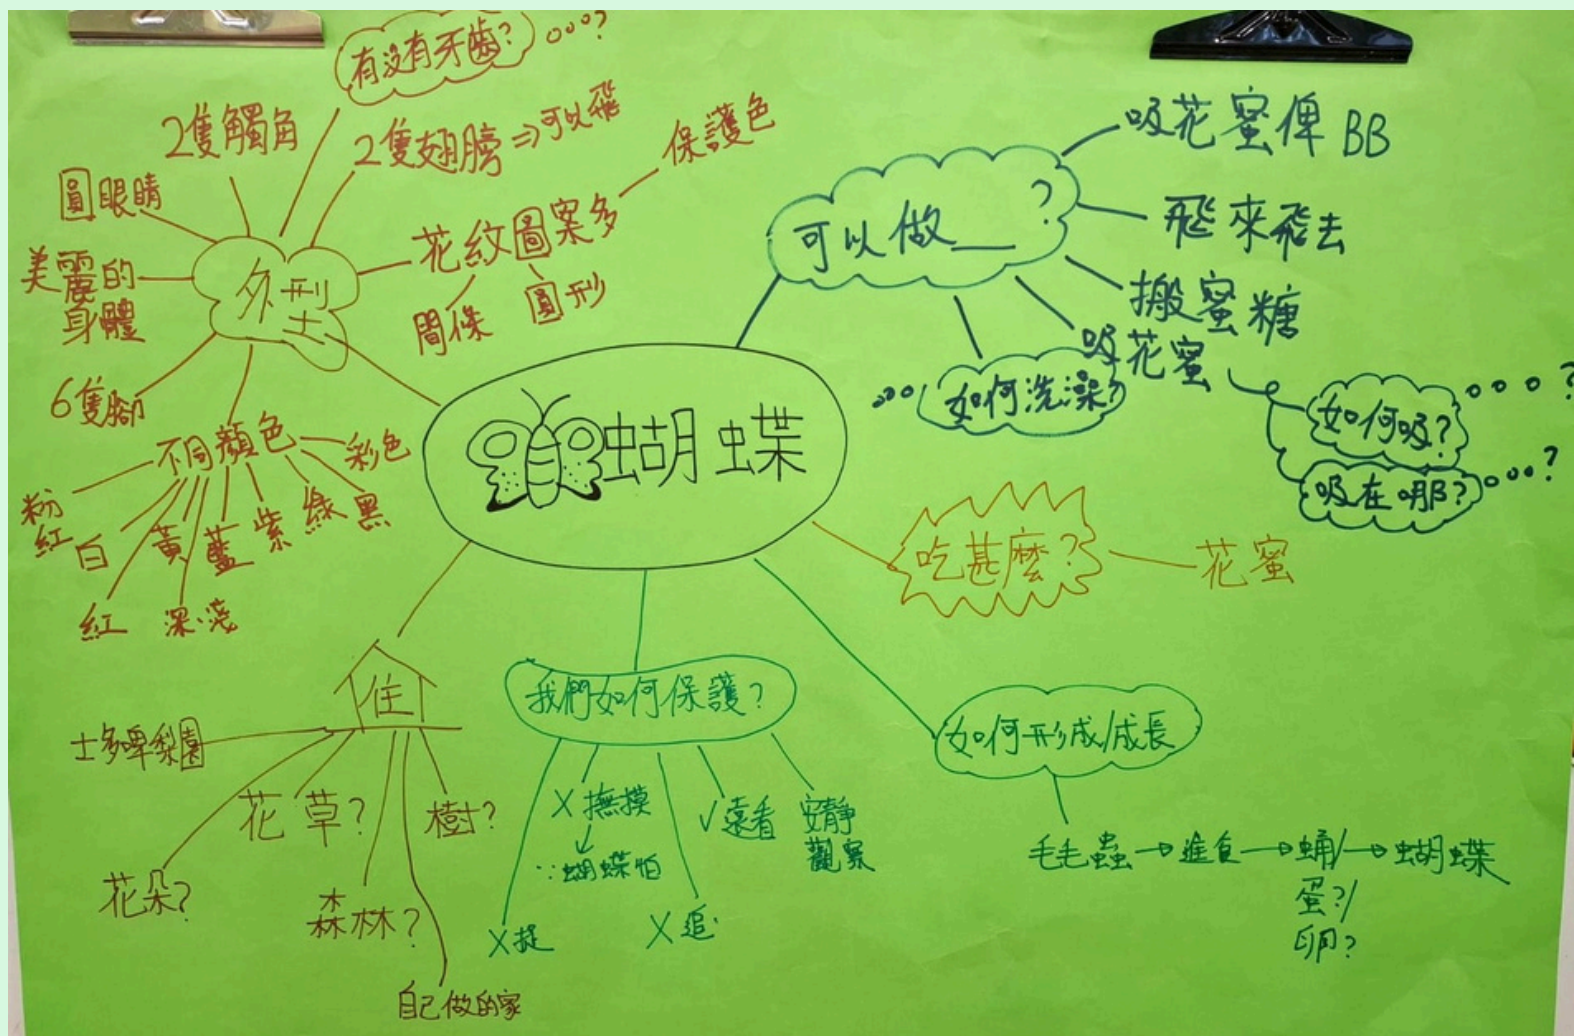 有沒有牙齒?
2隻觸角
2隻翅膀⇒可以飛
圓眼睛
美麗的
身體
外型
花紋圖案多
保護色
間條
圓形
6隻腳
不同顏色
彩色
粉
紅
白
黃
藍
紫
綠
黑
紅
深.淺
蝴蝶
可以做__?
吸花蜜俾BB
飛來飛去
搬蜜糖
吸花蜜
如何洗澡?
如何吸?
吸在哪?
吃甚麼?
花蜜
住
士多啤梨園
花草?
樹?
花朵?
森林?
自己做的家
我們如何保護?
X撫摸
∵蝴蝶怕
X捉
X追
✓遠看
安靜
觀察
如何形成/成長
毛毛蟲→進食→蛹/→蝴蝶
蛋?/
卵?